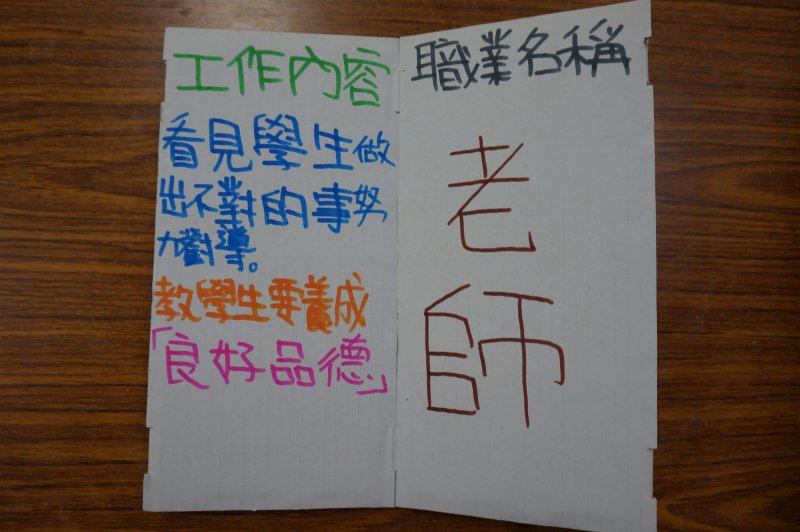 工作內容
看見學生做
出不對的事努
力勸導。
教學生要養成
「良好品德」
職業名稱
老
師